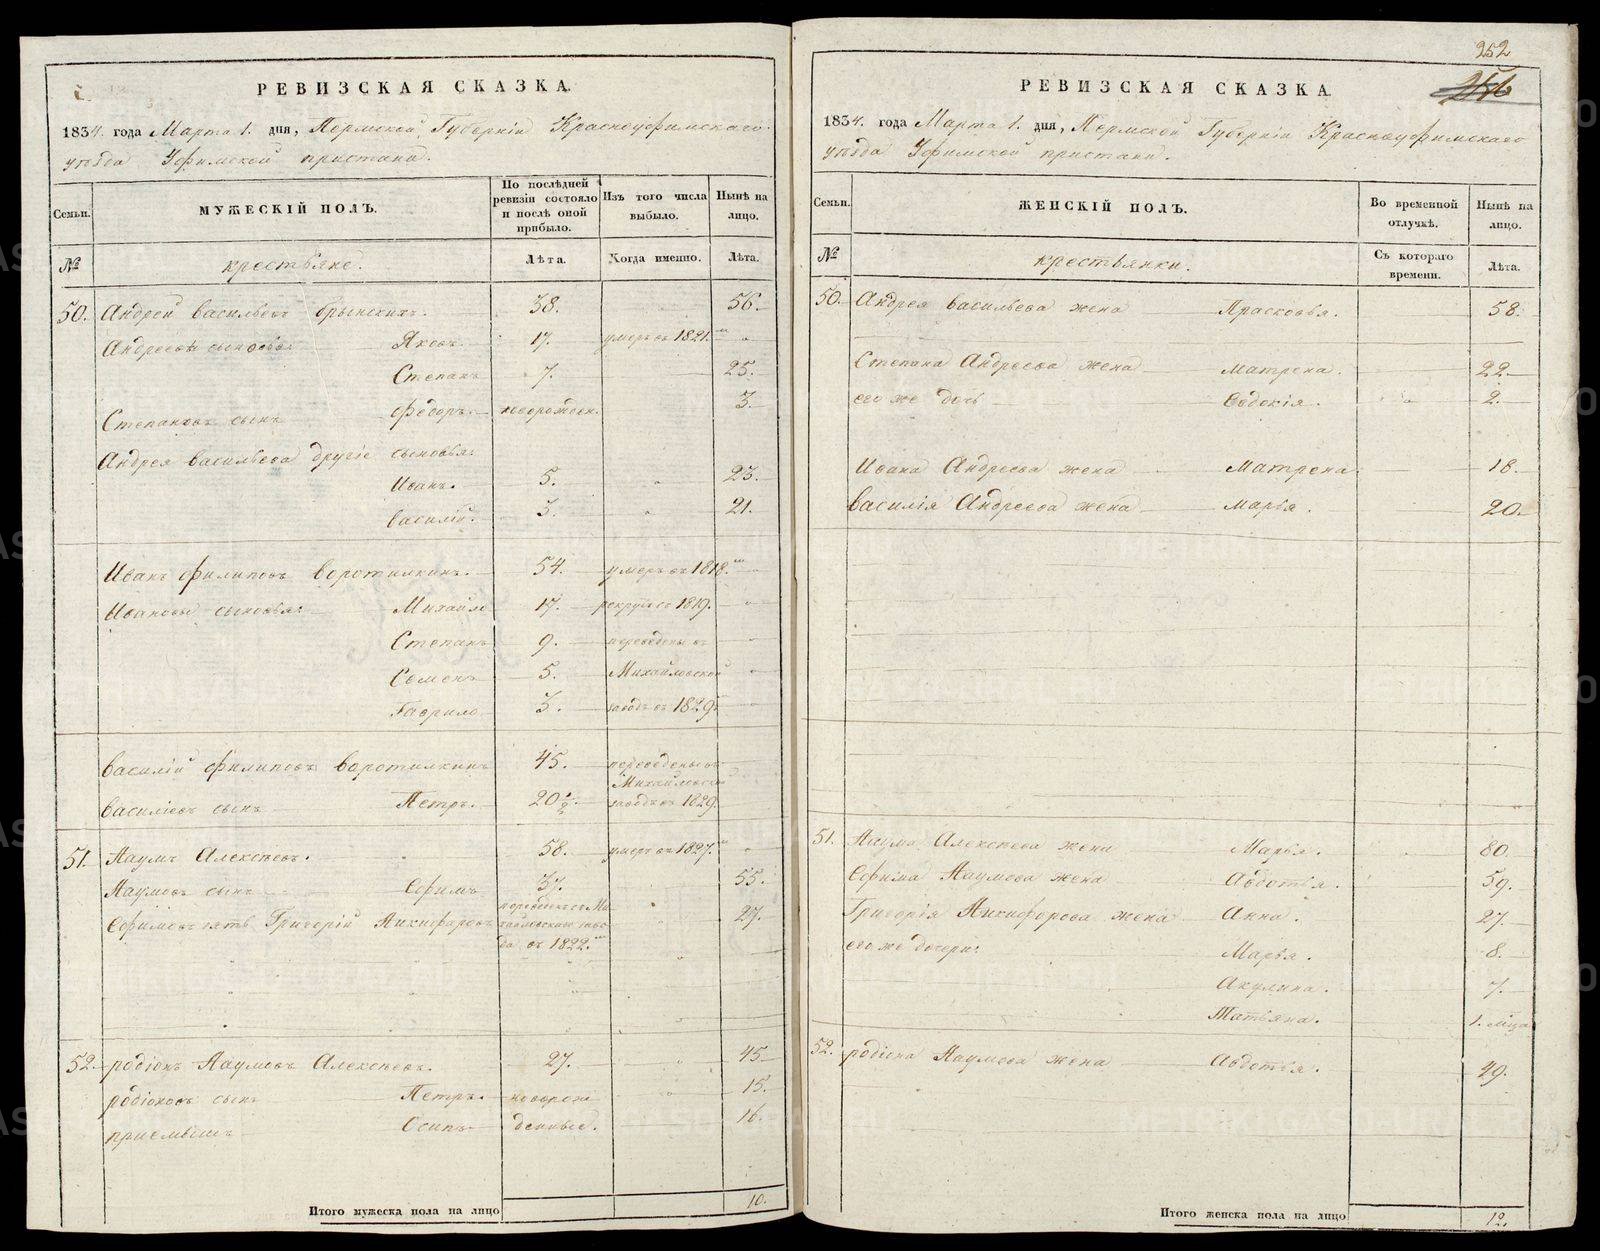 РЕВИЗСКАЯ СКАЗКА.
1834. года Марта 1. дня, Пермской Губерніи Красноуфимскаго
уѣзда Уфимской пристани.
Семьи.
МУЖЕСКІЙ ПОЛЪ.
По послѣдней ревизіи состояло и послѣ оной прибыло.
Изъ того числа выбыло.
Нынѣ на лицо.
№
крестьяне.
Лѣта.
Когда именно.
Лѣта.
50. Андрей Васильевъ Брынскихъ. 38. 56.
Андреевы сыновья Яковъ. 17. умеръ въ 1821.
Степанъ 7. 25.
Степановъ сынъ Федоръ. новорожден. 3.
Андрея Васильева другіе сыновья
Иванъ. 5. 23.
Василій. 3. 21.
Иванъ Филиповъ Воротилкинъ. 54. умеръ въ 1818.
Ивановы сыновья: Михайло 17. рекрутъ 1819.
Степанъ 9. переведены въ
Семенъ 5. Михайловской
Гаврило 3. заводъ въ 1829.
Василій Филиповъ Воротилкинъ 45. переведены въ
Михайловской
Васильевъ сынъ Петръ. 20 1/2. заводъ въ 1829.
51. Наумъ Алексѣевъ. 58. умеръ въ 1827.
Наумовъ сынъ Ефимъ 37. 55.
Ефимовъ зять Григорій Никифоровъ 27.
да въ 1822.
52. Родіонъ Наумовъ Алексѣевъ. 27. 45.
Родіоновъ сынъ Петръ. новорож 15.
пріемышъ Осипъ денные. 16.
Итого мужеска пола на лицо 10.
252
РЕВИЗСКАЯ СКАЗКА
1834. года Марта 1. дня, Пермской Губерніи Красноуфимскаго
уѣзда Уфимской пристани.
Семьи.
ЖЕНСКІЙ ПОЛЪ.
Во временной отлучкѣ.
Нынѣ на лицо.
№
крестьянки.
Съ котораго времени.
Лѣта.
50. Андрея Васильева жена Прасковья. 58.
Степана Андреева жена Матрена. 22.
его же дочь Евдокія. 2.
Ивана Андреева жена Матрена. 18.
Василія Андреева жена Марья. 20.
51. Наума Алексѣева жена Марья. 80
Ефима Наумова жена Авдотья. 59.
Григорія Никифорова жена Анна. 27.
его же дочери: Марья. 8.
Акулина. 7.
Татьяна. 1. мѣца
52. Родіона Наумова жена Авдотья. 49.
Итого женска пола на лицо 12.